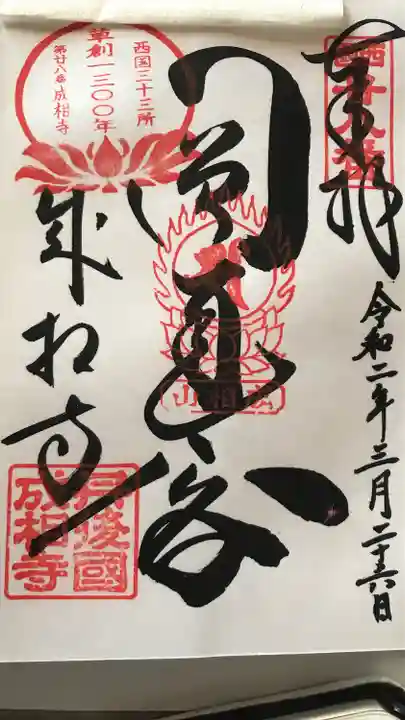 奉拝
西国廿八番
令和二年三月二十六日
圓通閣
成相山
西国三十三所
草創一三〇〇年
第廿八番 成相寺
成相寺
丹後國
成相寺